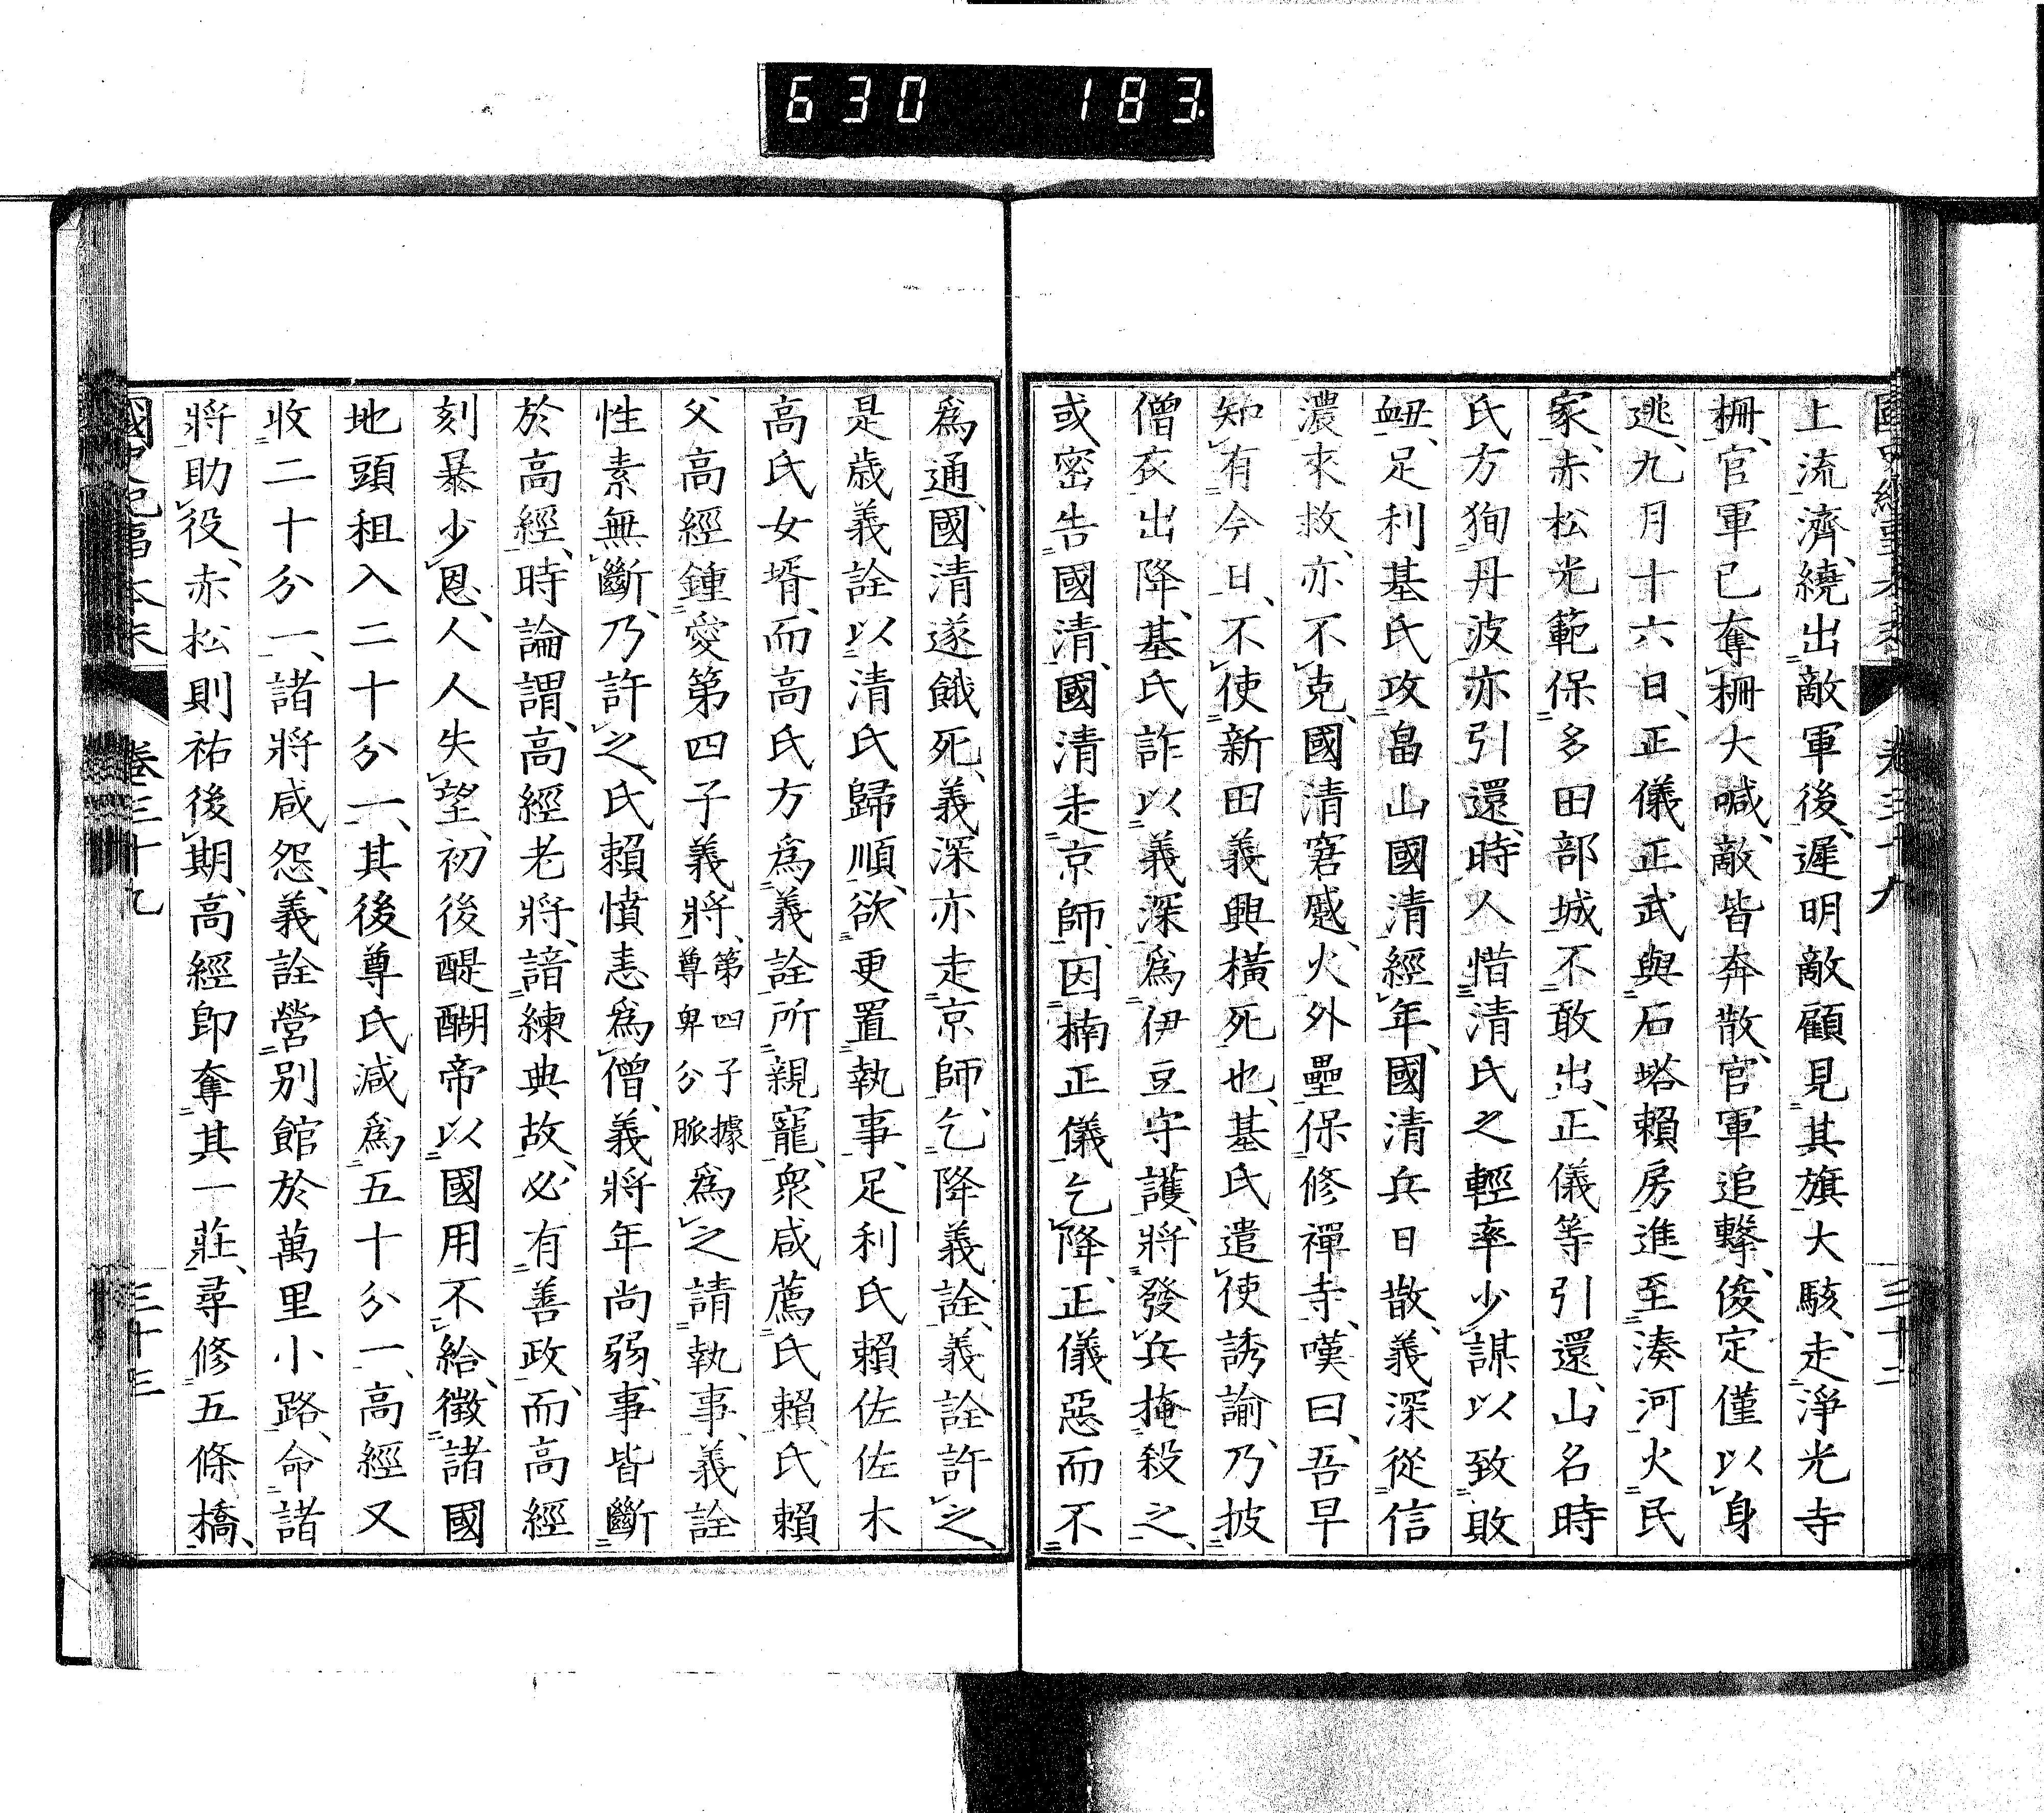 630 183
上流濟、繞出敵軍後、遲明敵顧見其旗大駭、走淨光寺
柵、官軍已奪柵大喊、敵皆奔散、官軍追擊、俊定僅以身
逃、九月十六日、正儀正武與石塔賴房進至湊河火民
家、赤松光範保多田部城不敢出、正儀等引還、山名時
氏方狥丹波亦引還、時人惜清氏之輕率少謀以致敗
衄、足利基氏攻畠山國清經年、國清兵日散、義深從信
濃來救、亦不克、國清窘蹙、火外壘保修禪寺、嘆曰、吾早
知有今日、不使新田義興橫死也、基氏遣使誘諭、乃披
僧衣出降、基氏詐以義深爲伊豆守護、將發兵掩殺之、
或密告國清、國清走京師、因楠正儀乞降、正儀惡而不
爲通、國清遂餓死、義深亦走京師、乞降義詮、義詮許之、
是歲義詮以清氏歸順、欲更置執事、足利氏賴佐佐木
高氏女壻、而高氏方爲義詮所親寵、衆咸薦氏賴、氏賴
父高經鍾愛第四子義將、第四子據尊卑分脈爲之請執事、義詮
性素無斷、乃許之、氏賴憤恚爲僧、義將年尚弱、事皆斷
於高經、時論謂、高經老將、諳練典故、必有善政、而高經
刻暴少恩、人人失望、初後醍醐帝以國用不給、徵諸國
地頭租入二十分一、其後尊氏減爲五十分一、高經又
收二十分一、諸將咸怨、義詮營別館於萬里小路、命諸
將助役、赤松則祐後期、高經卽奪其一莊、尋修五條橋、
國史紀事本末 卷三十九 三十三